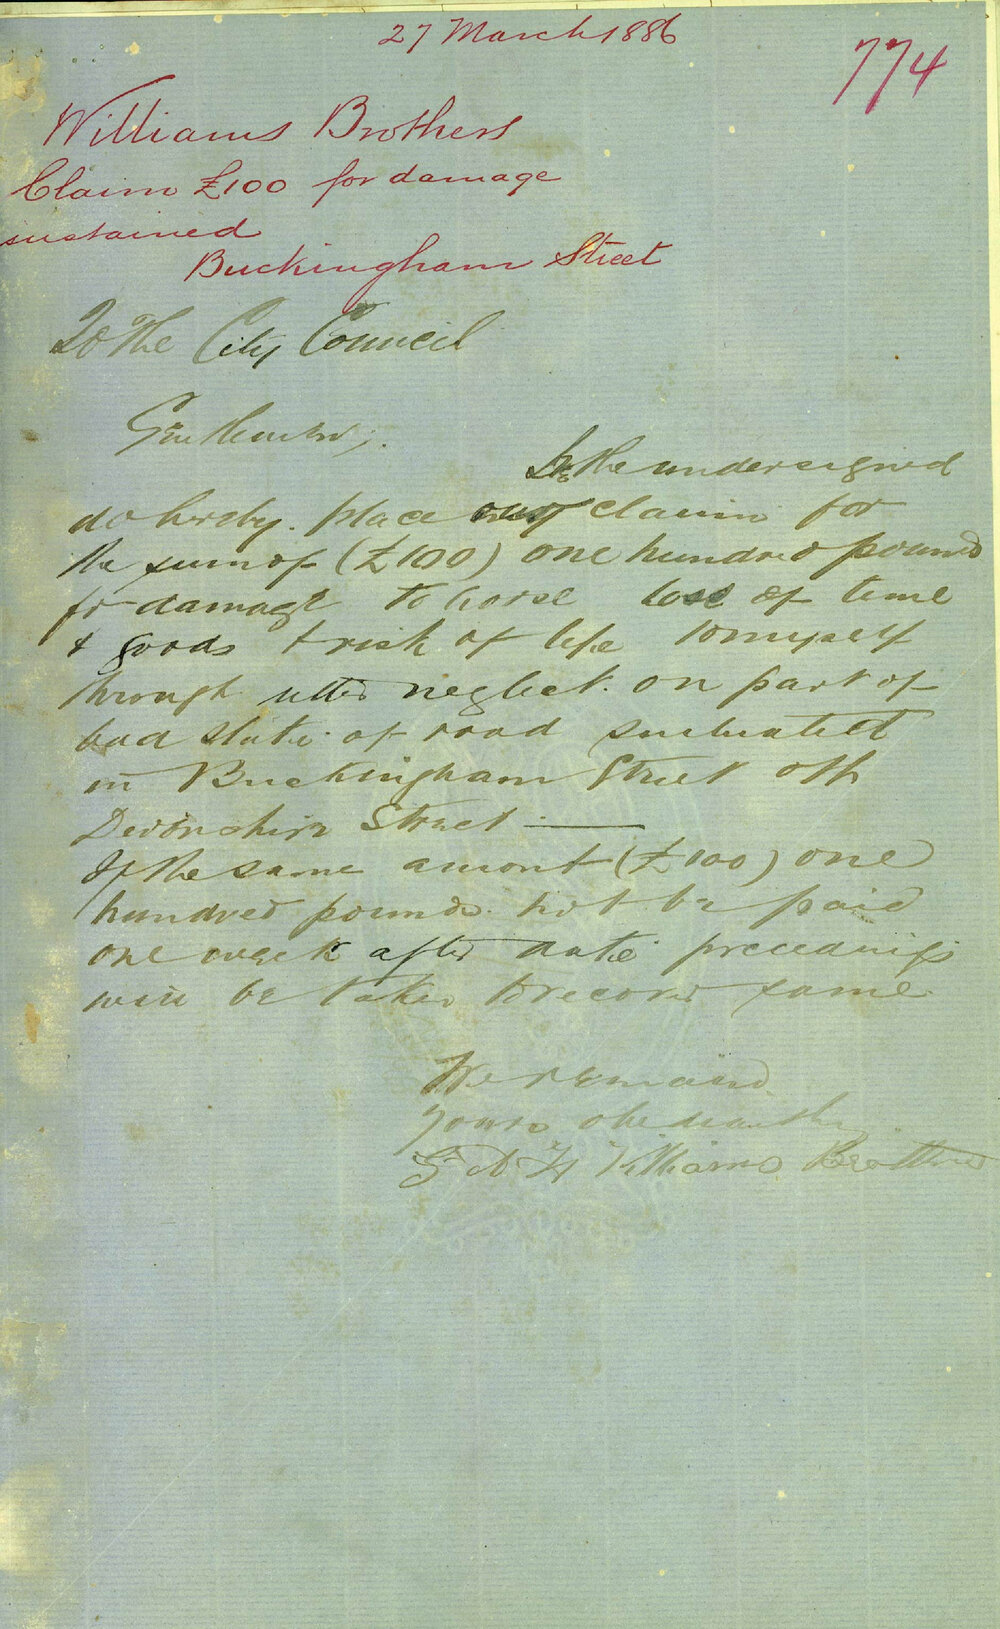 27 March 1886
774
Williams Brothers
Claim £100 for damage
sustained
Buckingham Street
To The City Council
Gentlemen;.
We the undersigned
do hereby. place our claim for
the sum of (£100) one hundred pounds
for damage to horse loss of time
& goods & risk of life to myself
through utter neglect. on part of
bad state of road situated
in Buckingham Street off
Devonshire Street —
If the same amont (£100) one
hundred pounds not be paid
one week after date preceedings
will be taken to recover same
We remain
yours obediantly
Williams Brothers